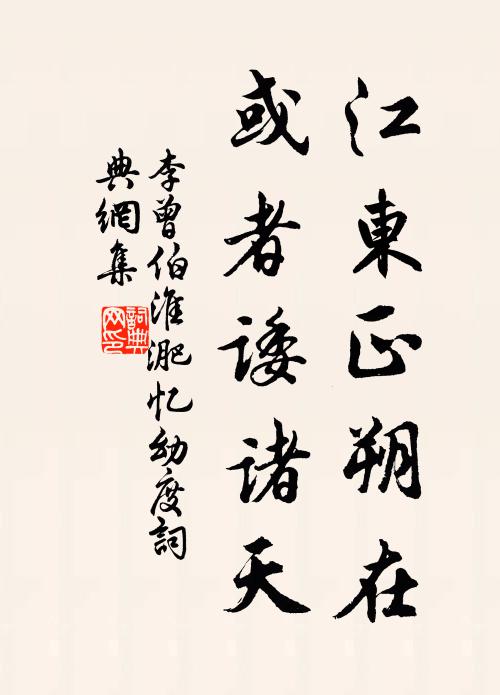 江東正朔在
或者諉諸天
李曾伯淮淝忆幼度詞
典網集
詞典網印